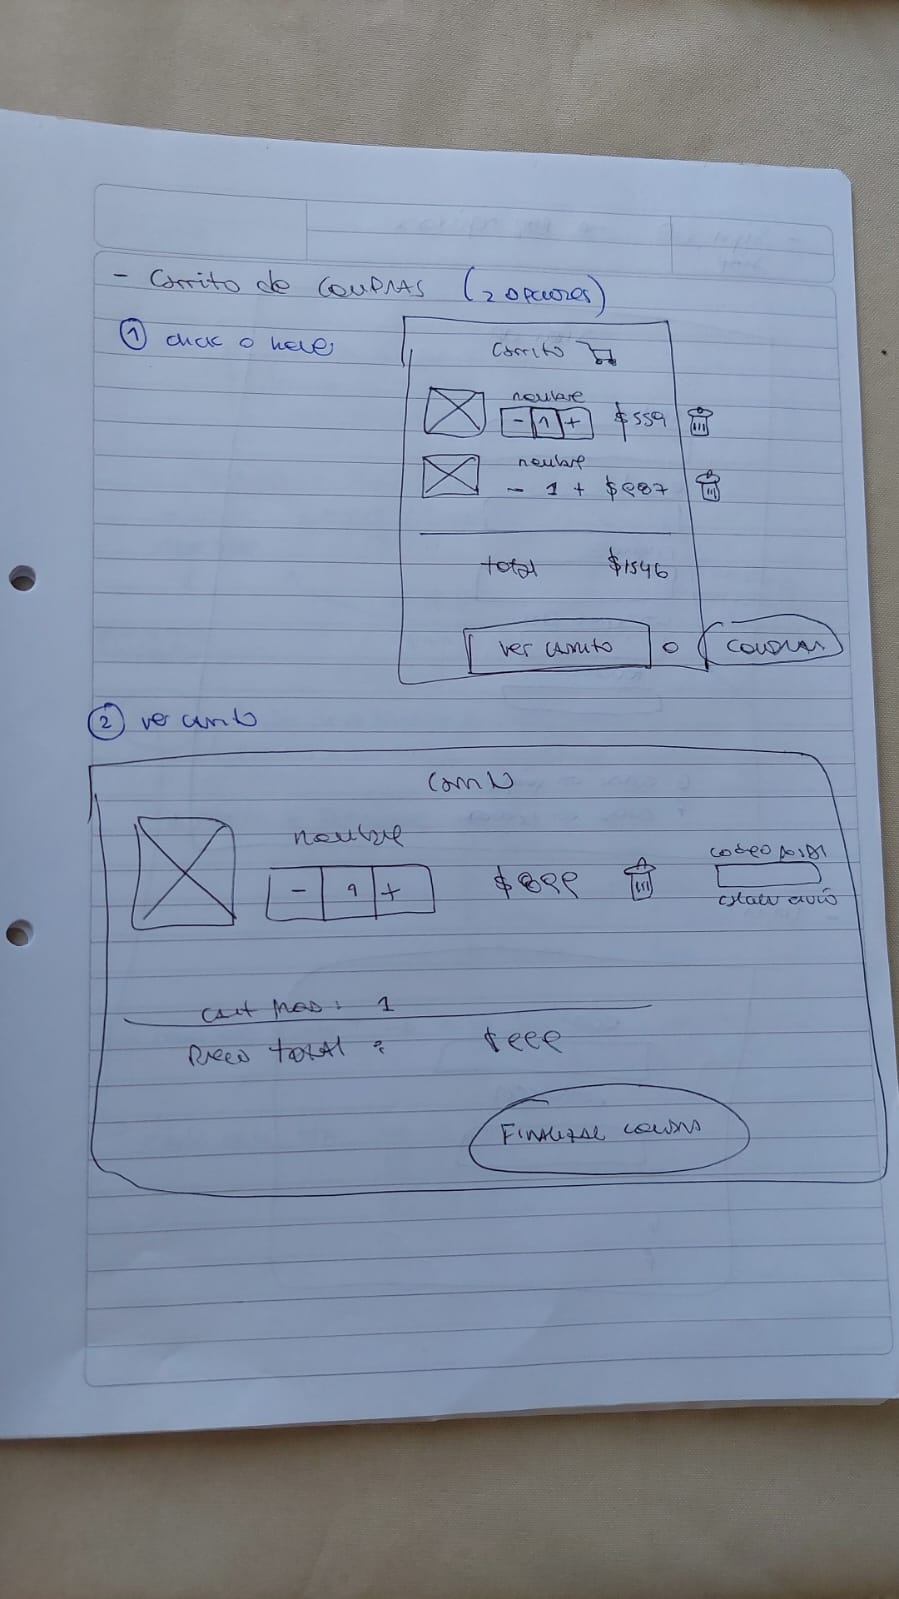 - Carrito de COMPRAS (2 opciones)
① click o hover
Carrito
nombre
- 1 + $559
nombre
- 1 + $987
total $1546
ver carrito o COMPRAR
② ver carrito
Carrito
nombre
- 1 + $899
codigo postal
calcular envio
cant prod: 1
Precio total:
FINALIZAR compra